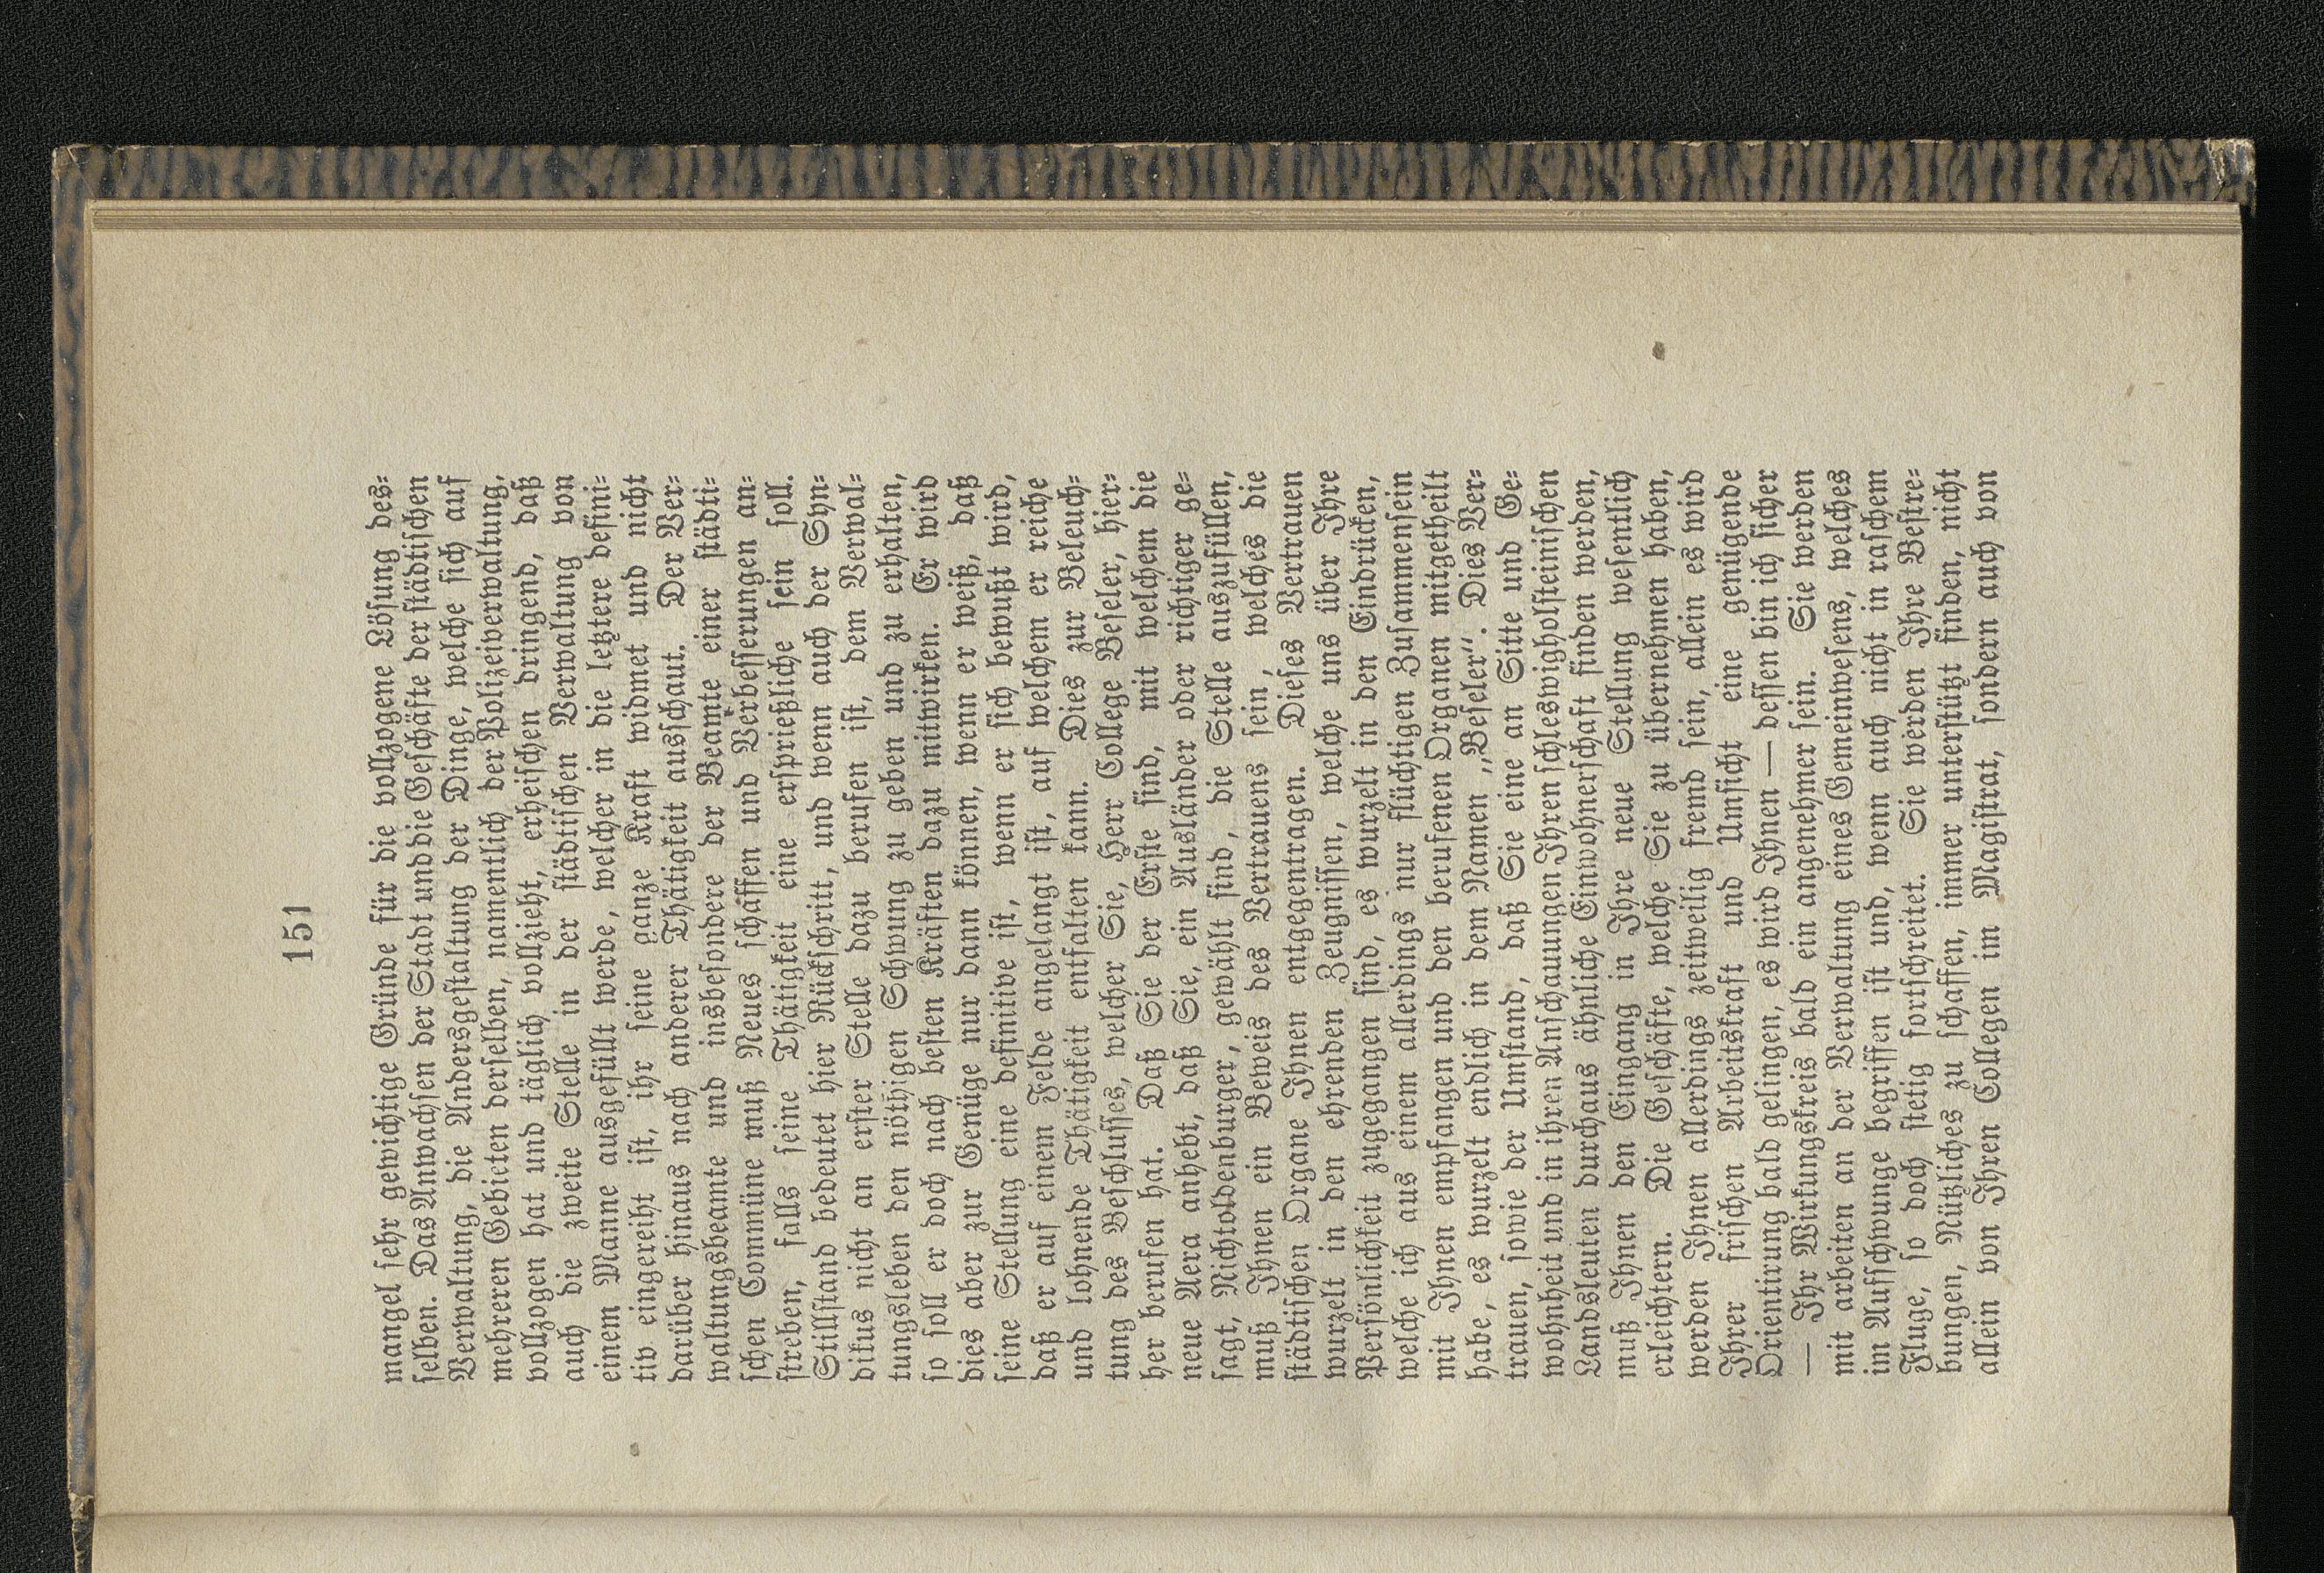 151
mangel sehr gewichtige Gründe für die vollzogene Lösung des-
selben. Das Anwachsen der Stadt und die Geschäfte der städtischen
Verwaltung, die Andersgestaltung der Dinge, welche sich auf
mehreren Gebieten derselben, namentlich der Polizeiverwaltung,
vollzogen hat und täglich vollzieht, erheischen dringend, daß
auch die zweite Stelle in der städtischen Verwaltung von
einem Manne ausgefüllt werde, welcher in die letztere defini-
tiv eingereiht ist, ihr seine ganze Kraft widmet und nicht
darüber hinaus nach anderer Thätigkeit ausschaut. Der Ver-
waltungsbeamte und insbesondere der Beamte einer städti-
schen Commüne muß Neues schaffen und Verbesserungen an-
streben, falls seine Thätigkeit eine ersprießliche sein soll.
Stillstand bedeutet hier Rückschritt, und wenn auch der Syn-
dikus nicht an erster Stelle dazu berufen ist, dem Verwal-
tungsleben den nöthigen Schwung zu geben und zu erhalten,
so soll er doch nach besten Kräften dazu mitwirken. Er wird
dies aber zur Genüge nur dann können, wenn er weiß, daß
seine Stellung eine definitive ist, wenn er sich bewußt wird,
daß er auf einem Felde angelangt ist, auf welchem er reiche
und lohnende Thätigkeit entfalten kann. Dies zur Beleuch-
tung des Beschlusses, welcher Sie, Herr College Beseler, hier-
her berufen hat. Daß Sie der Erste sind, mit welchem die
neue Aera anhebt, daß Sie, ein Ausländer oder richtiger ge-
sagt, Nichtoldenburger, gewählt sind, die Stelle auszufüllen,
muß Ihnen ein Beweis des Vertrauens sein, welches die
städtischen Organe Ihnen entgegentragen. Dieses Vertrauen
wurzelt in den ehrenden Zeugnissen, welche uns über Ihre
Persönlichkeit zugegangen sind, es wurzelt in den Eindrücken,
welche ich aus einem allerdings nur flüchtigen Zusammensein
mit Ihnen empfangen und den berufenen Organen mitgetheilt
habe, es wurzelt endlich in dem Namen „Beseler“. Dies Ver-
trauen, sowie der Umstand, daß Sie eine an Sitte und Ge-
wohnheit und in ihren Anschauungen Ihren schleswigholsteinischen
Landsleuten durchaus ähnliche Einwohnerschaft finden werden,
muß Ihnen den Eingang in Ihre neue Stellung wesentlich
erleichtern. Die Geschäfte, welche Sie zu übernehmen haben,
werden Ihnen allerdings zeitweilig fremd sein, allein es wird
Ihrer frischen Arbeitskraft und Umsicht eine genügende
Orientirung bald gelingen, es wird Ihnen — dessen bin ich sicher
— Ihr Wirkungskreis bald ein angenehmer sein. Sie werden
mit arbeiten an der Verwaltung eines Gemeinwesens, welches
im Aufschwunge begriffen ist und, wenn auch nicht in raschem
Fluge, so doch stetig fortschreitet. Sie werden Ihre Bestre-
bungen, Nützliches zu schaffen, immer unterstützt finden, nicht
allein von Ihren Collegen im Magistrat, sondern auch von